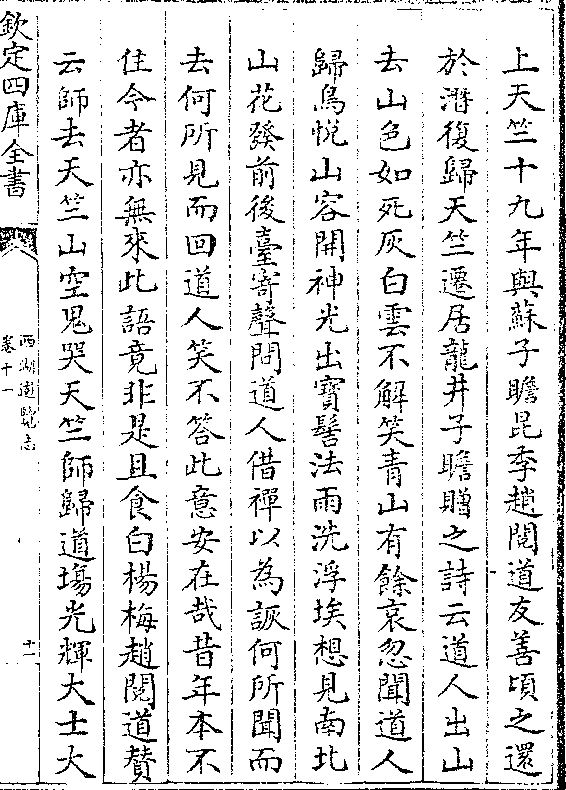 上天竺十九年與蘇子瞻昆季趙閱道友善頃之還
於潛復歸天竺遷居龍井子瞻贈之詩云道人出山
去山色如死灰白雲不解笑青山有餘哀忽聞道人
歸鳥悅山容開神光出寶髻法雨洗浮埃想見南北
山花發前後臺寄聲問道人借禪以為詼何所聞而
去何所見而回道人笑不答此意安在哉昔年本不
住今者亦無來此語竟非是且食白楊梅趙閱道贊
云師去天竺山空鬼哭天竺師歸道場光輝大士大
欽定四庫全書
西湖遊覽志
卷十一
十一